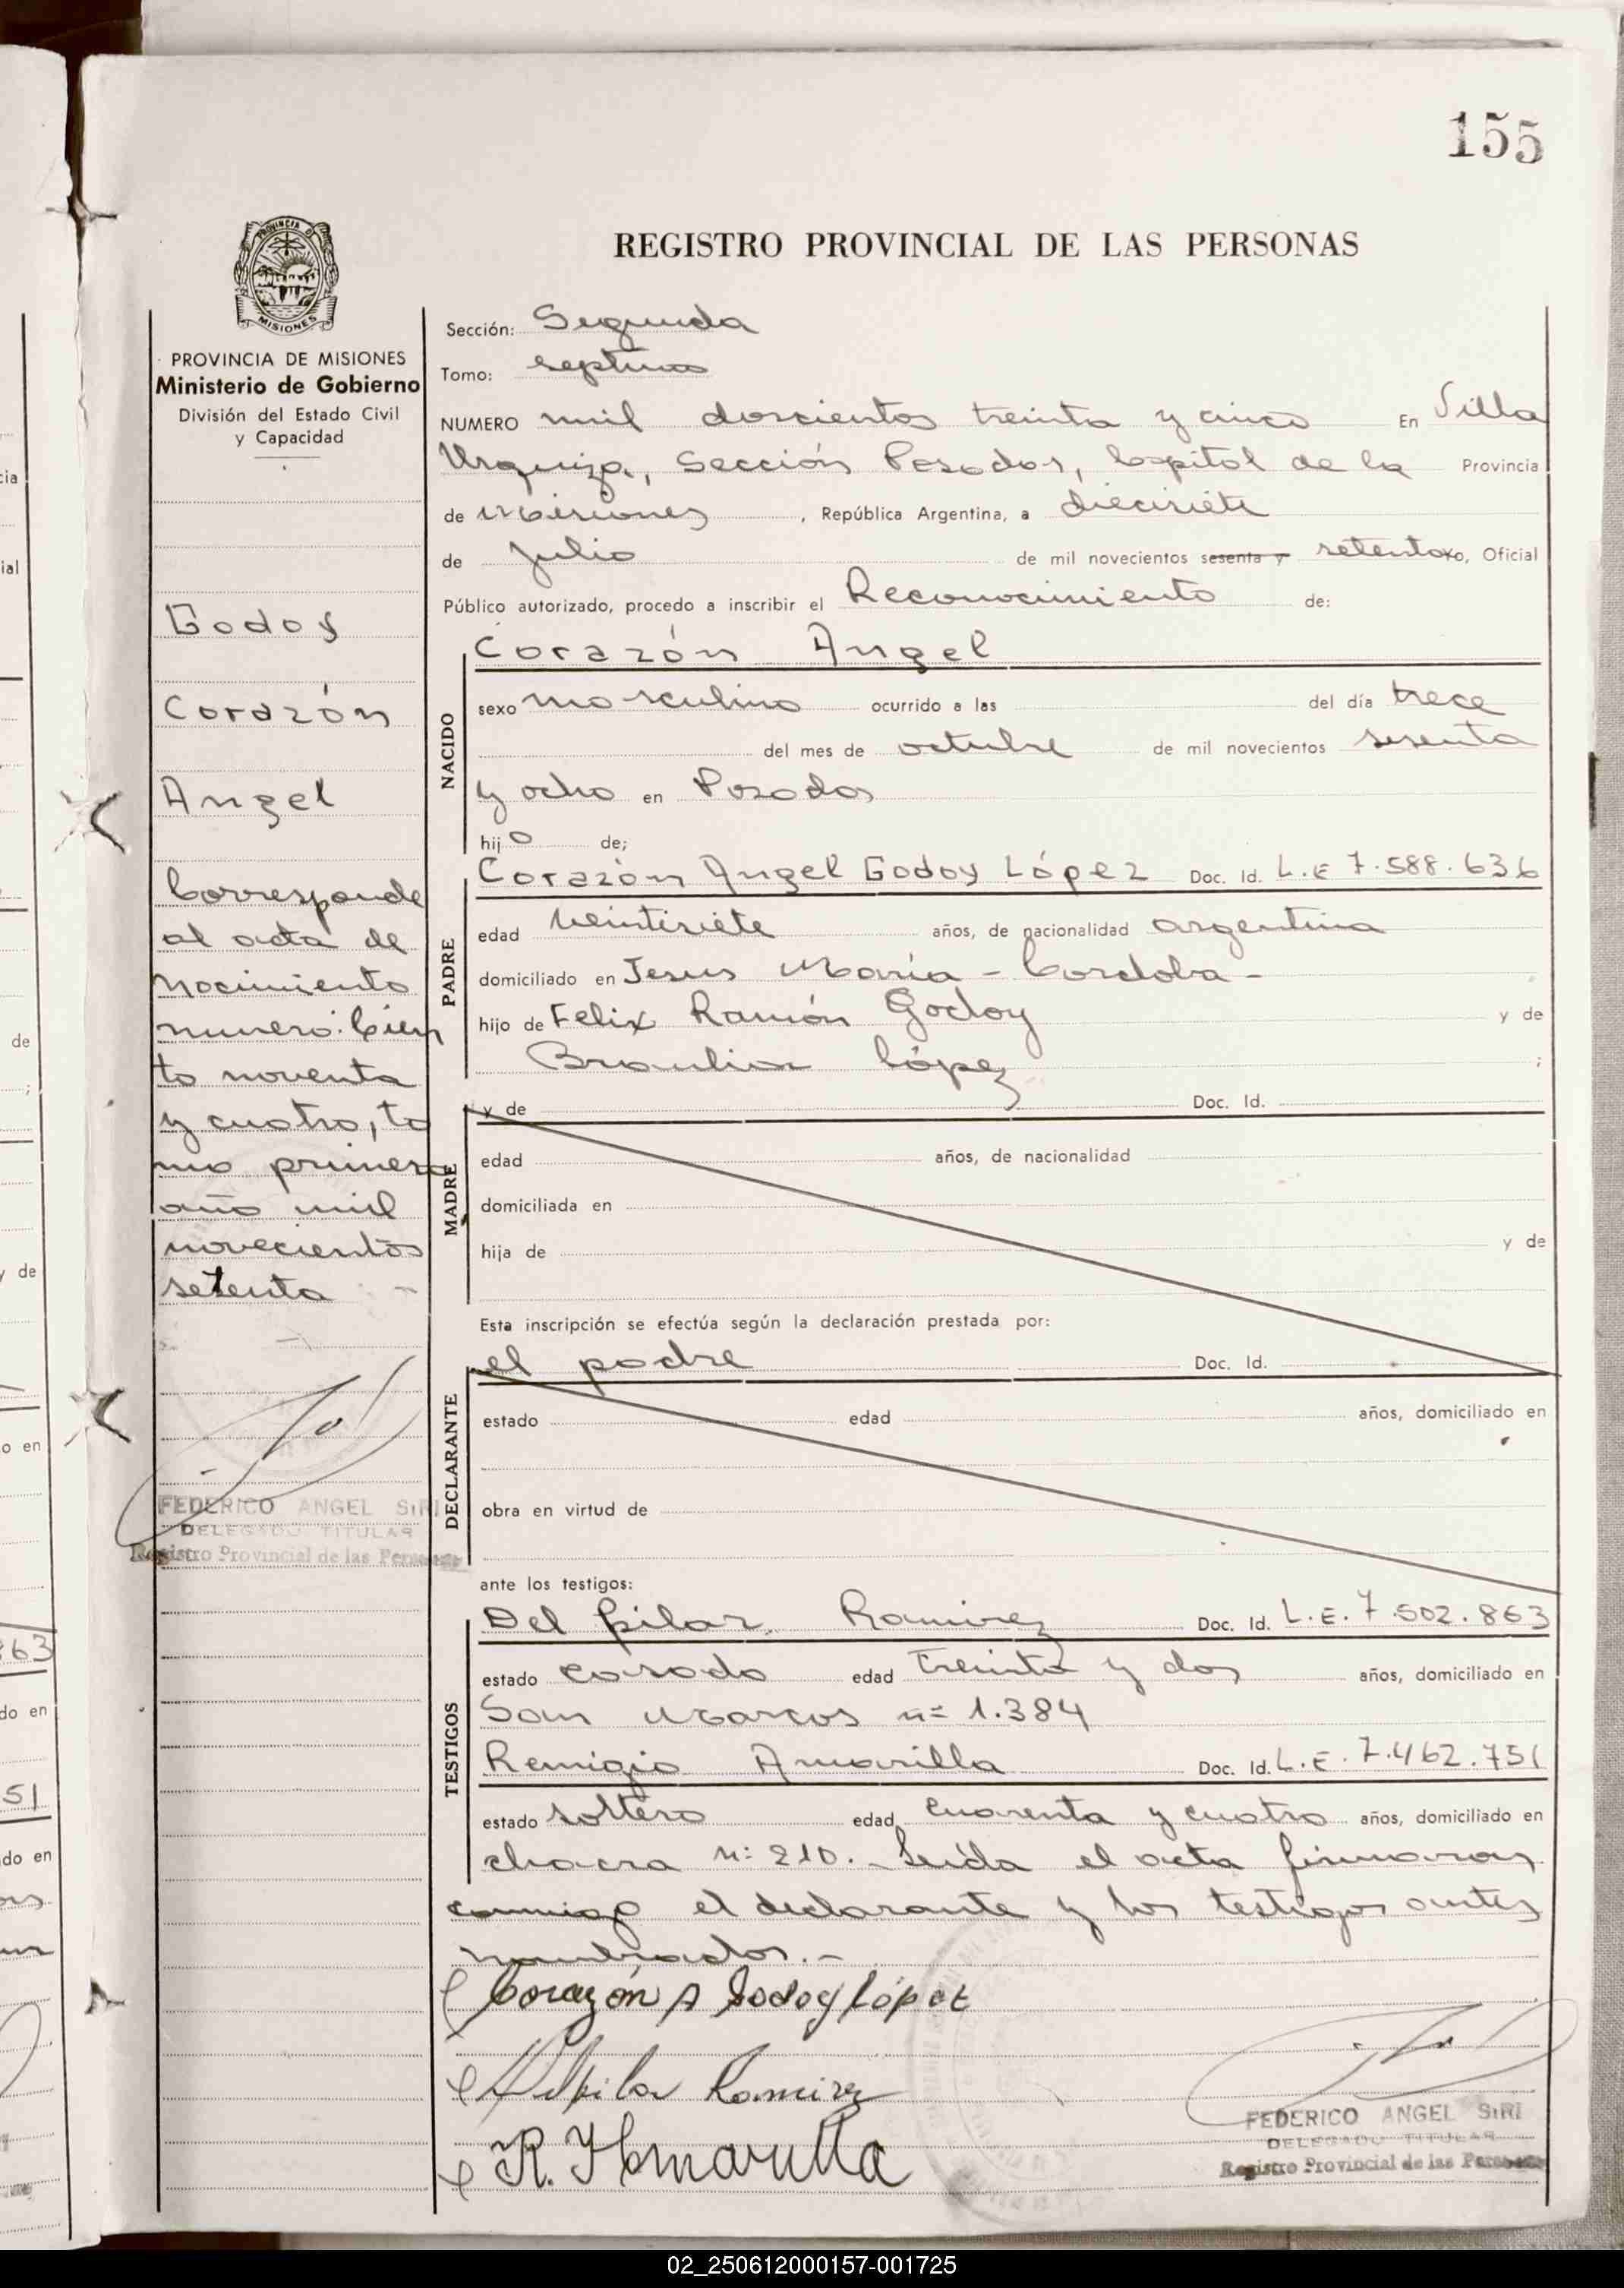 155
REGISTRO PROVINCIAL DE LAS PERSONAS
PROVINCIA DE MISIONES
PROVINCIA DE MISIONES
Ministerio de Gobierno
División del Estado Civil
y Capacidad
Godoy
Corazón
Angel
Corresponde
al acta de
nacimiento
numero: Cien
to noventa
y cuatro, to
mo primero
año mil
novecientos
setenta -
FEDERICO ANGEL SIRI
DELEGADO TITULAR
Registro Provincial de las Personas
Sección: Segunda
Tomo: septimo
NUMERO mil doscientos treinta y cinco En Villa
Urquiza, Sección Posadas, Capital de la Provincia
de Misiones, República Argentina, a diecisiete
de Julio de mil novecientos sesenta y setenta, Oficial
Público autorizado, procedo a inscribir el Reconocimiento de:
Corazón Angel
NACIDO
sexo masculino ocurrido a las del día trece
del mes de octubre de mil novecientos sesenta
y ocho en Posadas
hijo de;
Corazón Angel Godoy López Doc. Id. L.E 7.588.636
PADRE
edad veintisiete años, de nacionalidad argentina
domiciliado en Jesus María - Cordoba -
hijo de Felix Ramón Godoy y de
Braulia López ;
y de Doc. Id.
MADRE
edad años, de nacionalidad
domiciliada en
hija de y de
Esta inscripción se efectúa según la declaración prestada por:
el padre Doc. Id.
DECLARANTE
estado edad años, domiciliado en
obra en virtud de
ante los testigos:
Del Pilar Ramirez Doc. Id. L.E. 7.502.863
TESTIGOS
estado casado edad treinta y dos años, domiciliado en
San Marcos n= 1.384
Remigio Amarilla Doc. Id. L.E. 7.462.751
estado soltero edad cuarenta y cuatro años, domiciliado en
chacra n: 210. - Leída el acta firmaron
conmigo el declarante y los testigos antes
nombrados. -
Corazón A Godoy López
Delpilar Ramirez
R. Amarilla
FEDERICO ANGEL SIRI
DELEGADO TITULAR
Registro Provincial de las Personas
cia
ial
de
;
y de
o en
863
do en
51
do en
02_250612000157-001725